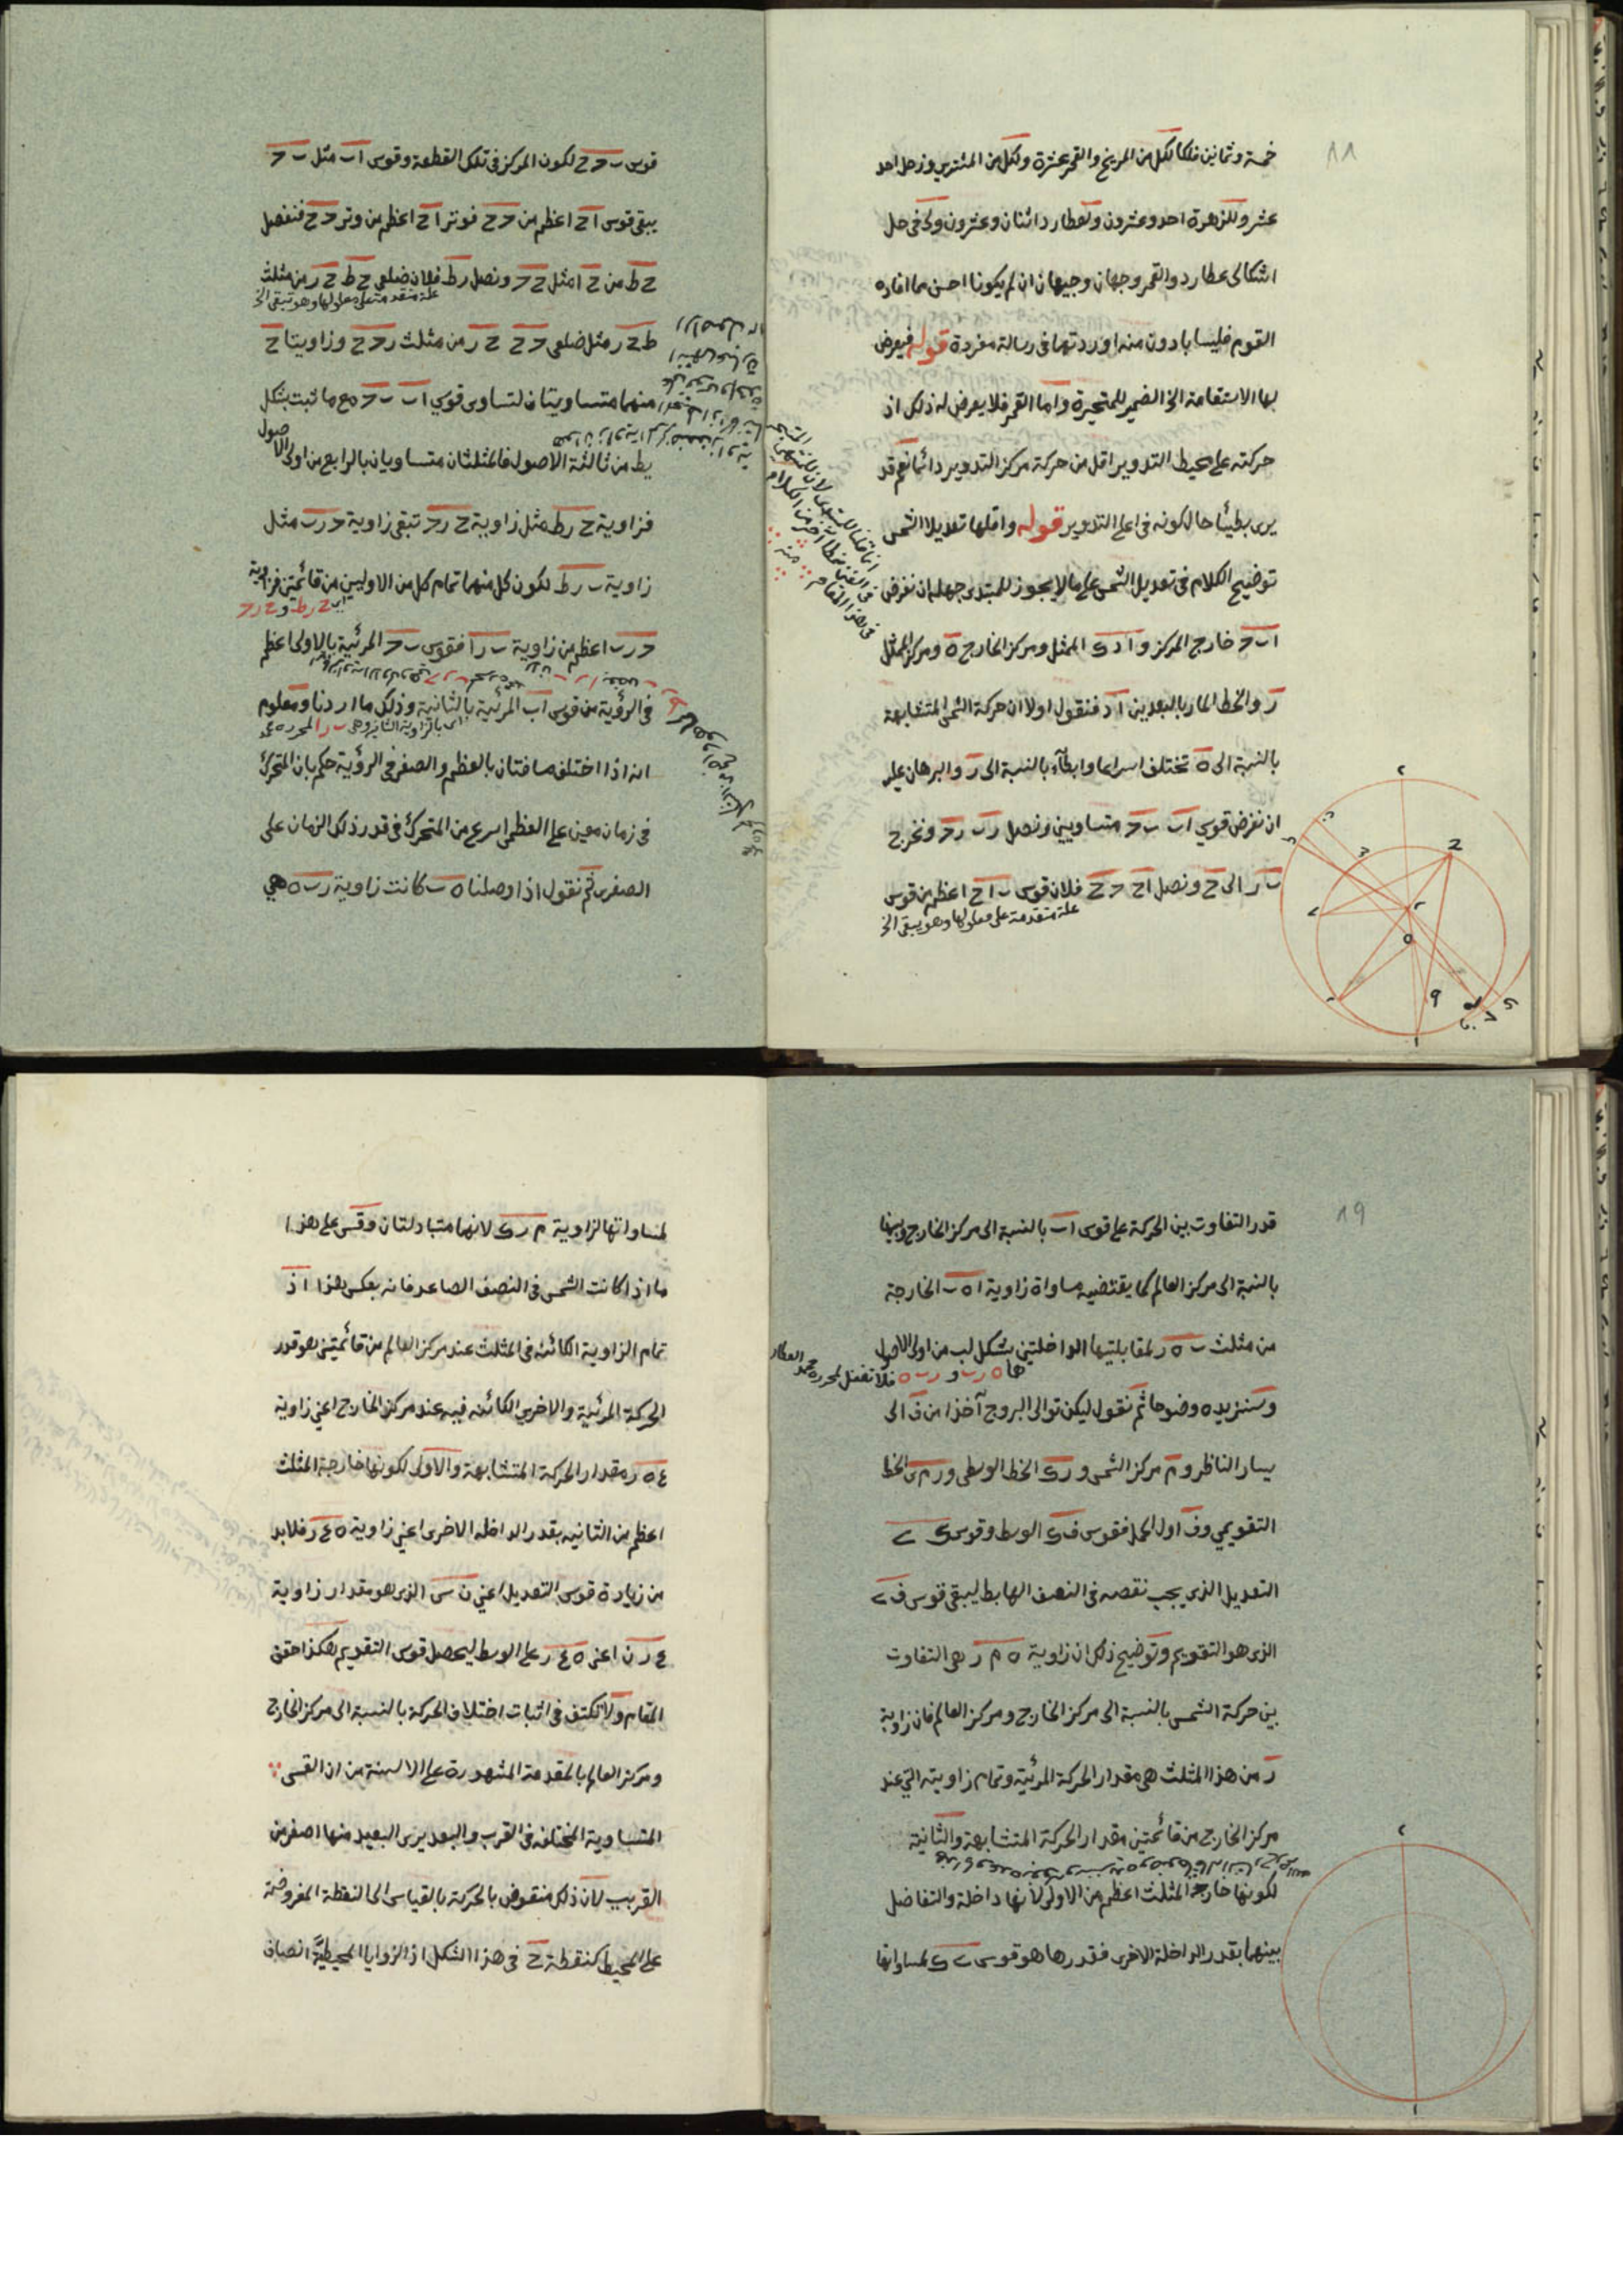 ١٨
خمسة وثمانين فلكا لكل من المريخ والقمر عشرة ولكل من المشتري وزحل احد
عشر وللزهرة احد وعشرون ولعطارد اثنان وعشرون ولي في حل
اشكالى عطارد والقمر وجهان وجيهان ان لم يكونا احسن مما افاده
القوم فليسا بادون منه اوردتهما فى رسالة مفردة قوله فيعرض
بها الاستقامة الخ الضمير للمتحيرة واما القمر فلا يعرض له ذلك اذ
حركته على محيط التدوير اقل من حركة مركز التدوير دائما نعم قد
يرى بطيئا حال كونه فى اعلى التدوير قوله واقلها تعديلا الشمس
توضيح الكلام فى تعديل الشمس على ما لا يجوز للمبتدى جهله ان نفرض
ا ب ح خارج المركز و ا د ى الممثل ومركز الخارج ه ومركز الممثل
ر والخط المار بالبعدين ا د فنقول اولا ان حركة الشمس المتشابهة
بالنسبة الى ه تختلف اسراعا وابطآء بالنسبة الى ر والبرهان عليه
ان نفرض قوسي ا ب ب ح متساويين ونصل ر ب ر ح ونخرج
ب ر الى ح ونصل ا ح ح ح فلان قوس ب ا ح اعظم من قوس
علة متقدمة على معلولها وهو يبقى الخ
قوس ب ح ح لكون المركز فى تلك القطعة وقوس ا ب مثل ب ح
يبقى قوس ا ح اعظم من ح ح فوتر ا ح اعظم من وتر ح ح فنفصل
ح ط من ح ا مثل ح ح ونصل ر ط فلان ضلعى ح ط ح ر من مثلث
علة متقدمة على معلولها وهو تبقى الخ
ط ح ر مثل ضلعى ح ح ح ر من مثلث ر ح ح وزاويتا ح
منهما متساويتان لتساوى قوسي ا ب ب ح مع ما ثبت بشكل
يط من ثالثة الاصول فالمثلثان متساويان بالرابع من اولى الاصول
فزاوية ح ر ط مثل زاوية ح ر ح تبقى زاوية ح ر ب مثل
زاوية ب ر ط لكون كل منهما تمام كل من الاوليين من قائمتين فزاوية
ح ر ب اعظم من زاوية ب ر ا فقوس ب ح المرئية بالاولى اعظم
فى الرؤية من قوس ا ب المرئية بالثانية وذلك ما اردنا ومعلوم
انه اذا اختلف مسافتان بالعظم والصغر فى الرؤية حكم بان المتحرك
فى زمان معين على العظمى اسرع من المتحرك فى قدر ذلك الزمان على
الصغرى ثم نقول اذا وصلنا ه ب كانت زاوية ر ب ه هي
١٩
قدر التفاوت بين الحركة على قوس ا ب بالنسبة الى مركز الخارج وبينها
بالنسبة الى مركز العالم كما يقتضيه مساواة زاوية ا ه ب الخارجة
من مثلث ب ه ر لمقابلتيها الداخلتين بشكل لب من اولى الاصول
هما ه ر ب و ر ب ه فلا تغفل لمحرره محمد العطار
وسنزيده وضوحا ثم نقول ليكن توالى البروج آخذا من ف الى
يسار الناظر و م مركز الشمس و ر ى الخط الوسطى و ر م س الخط
التقويمي و ف اول الحمل فقوس ف ى الوسط وقوس ى ح
التعديل الذى يجب نقصه فى النصف الهابط ليبقى قوس ف ح
الذى هو التقويم وتوضيح ذلك ان زاوية ه م ر هى التفاوت
بين حركة الشمس بالنسبة الى مركز الخارج ومركز العالم فان زاوية
ر من هذا المثلث هى مقدار الحركة المرئية وتمام زاويته التي عند
مركز الخارج من قائمتين مقدار الحركة المتشابهة والثانية
لكونها خارجة المثلث اعظم من الاولى لانها داخلة والتفاضل
بينهما بقدر الداخلة الاخرى فقدرها هو قوس ح ى لمساواتها
لمساواتها لزاوية م ر ى لانهما متبادلتان وقس على هذا
ما اذا كانت الشمس فى النصف الصاعد فانه بعكس هذا اذ
تمام الزاوية الكائنه فى المثلث عند مركز العالم من قائمتين هو قدر
الحركة المرئية والاخرى الكائنه فيه عند مركز الخارج اعني زاوية
ع ه ر مقدار الحركة المتشابهة والاولى لكونها خارجة المثلث
اعظم من الثانيه بقدر الداخله الاخرى اعني زاوية ه ع ر فلا بد
من زيادة قوس التعديل اعني ن س الذى هو مقدار زاوية
ع ر ن اعنى ه ع ر على الوسط ليحصل قوس التقويم هكذا حقق
المقام ولا تكتف فى اثبات اختلاف الحركة بالنسبة الى مركز الخارج
ومركز العالم بالمقدمة المشهورة على الالسنة من ان القسى
المتساوية المختلفه فى القرب والبعد يرى البعيد منها اصغر من
القريب لان ذلك منقوض بالحركة بالقياس الى النقطة المفروضة
على المحيط كنقطة ح فى هذا الشكل اذ الزوايا المحيطيَّة انصاف